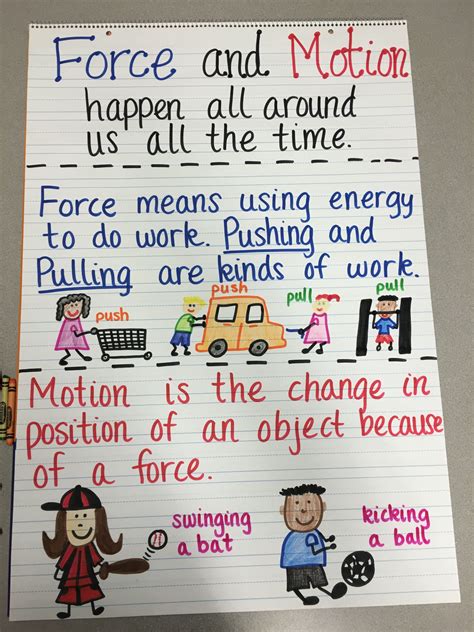 Force and Motion
happen all around
us all the time.
Force means using energy
to do work. Pushing and
Pulling are kinds of work.
push
push
pull
pull
Motion is the change in
position of an object because
of a force.
swinging
a bat
kicking
a ball